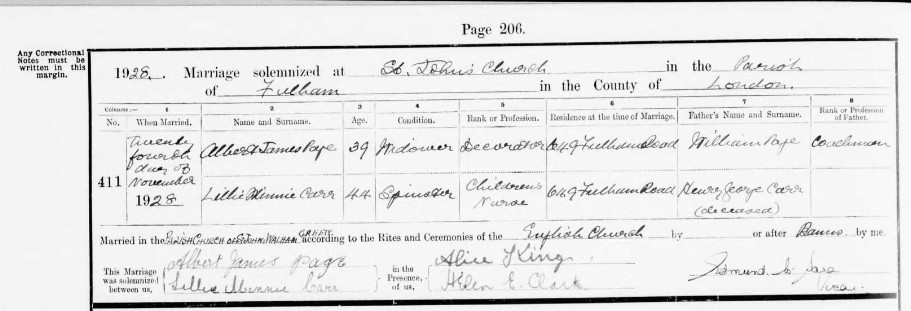 Page 206.
Any Correctional
Notes must be
written in this
margin.
1928. Marriage solemnized at St. John's Church in the Parish
of Fulham in the County of London.
Columns :— 1 2 3 4 5 6 7 8
No. When Married. Name and Surname. Age. Condition. Rank or Profession. Residence at the time of Marriage. Father's Name and Surname. Rank or Profession of Father.
411 Twenty fourth day of November 1928
Albert James Page 39 Widower Decorator 649 Fulham Road William Page Coachman
Lillie Minnie Carr 44 Spinster Childrens Nurse 649 Fulham Road Henry George Carr (deceased)
Married in the Parish Church of St John Walham Green according to the Rites and Ceremonies of the English Church by or after Banns by me,
This Marriage was solemnized between us,
Albert James Page
Lillie Minnie Carr
in the Presence of us,
Alice King
Helen E. Clark
Edmund Vicar